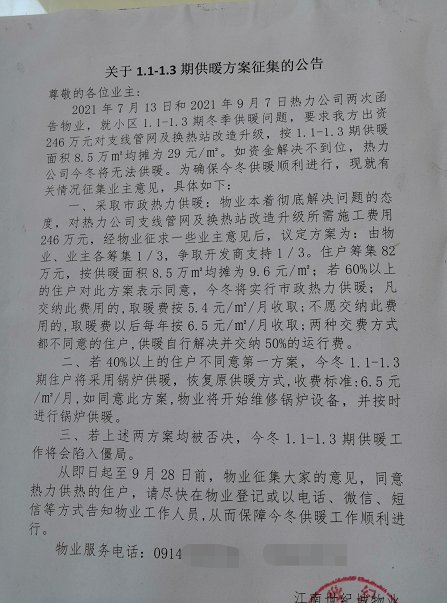 关于 1.1-1.3 期供暖方案征集的公告
尊敬的各位业主：
2021 年 7 月 13 日和 2021 年 9 月 7 日热力公司两次函
告物业，就小区 1.1-1.3 期冬季供暖问题，要求我方出资
246 万元对支线管网及换热站改造升级，按 1.1-1.3 期供暖
面积 8.5 万㎡均摊为 29 元/㎡。如资金解决不到位，热力
公司今冬将无法供暖。为确保今冬供暖顺利进行，现就有
关情况征集业主意见，具体如下：
一、采取市政热力供暖：物业本着彻底解决问题的态
度，对热力公司支线管网及换热站改造升级所需施工费用
246 万元，经物业征求一些业主意见后，议定方案为：由物
业、业主各筹集 1/3，争取开发商支持 1/3。住户筹集 82
万元，按供暖面积 8.5 万㎡均摊为 9.6 元/㎡；若 60%以上
的住户对此方案表示同意，今冬将实行市政热力供暖；凡
交纳此费用的，取暖费按 5.4 元/㎡/月收取；不愿交纳此费
用的，取暖费以后每年按 6.5 元/㎡/月收取；两种交费方式
都不同意的住户，供暖自行解决并交纳 50%的运行费。
二、若 40%以上的住户不同意第一方案，今冬 1.1-1.3
期住户将采用锅炉供暖，恢复原供暖方式，收费标准：6.5 元
/㎡/月，如同意此方案，物业将开始维修锅炉设备，并按时
进行锅炉供暖。
三、若上述两方案均被否决，今冬 1.1-1.3 期供暖工
作将会陷入僵局。
从即日起至 9 月 28 日前，物业征集大家的意见，同意
热力供热的住户，请尽快在物业登记或以电话、微信、短
信等方式告知物业工作人员，从而保障今冬供暖工作顺利进
行。
物业服务电话：0914
江南世纪城物业